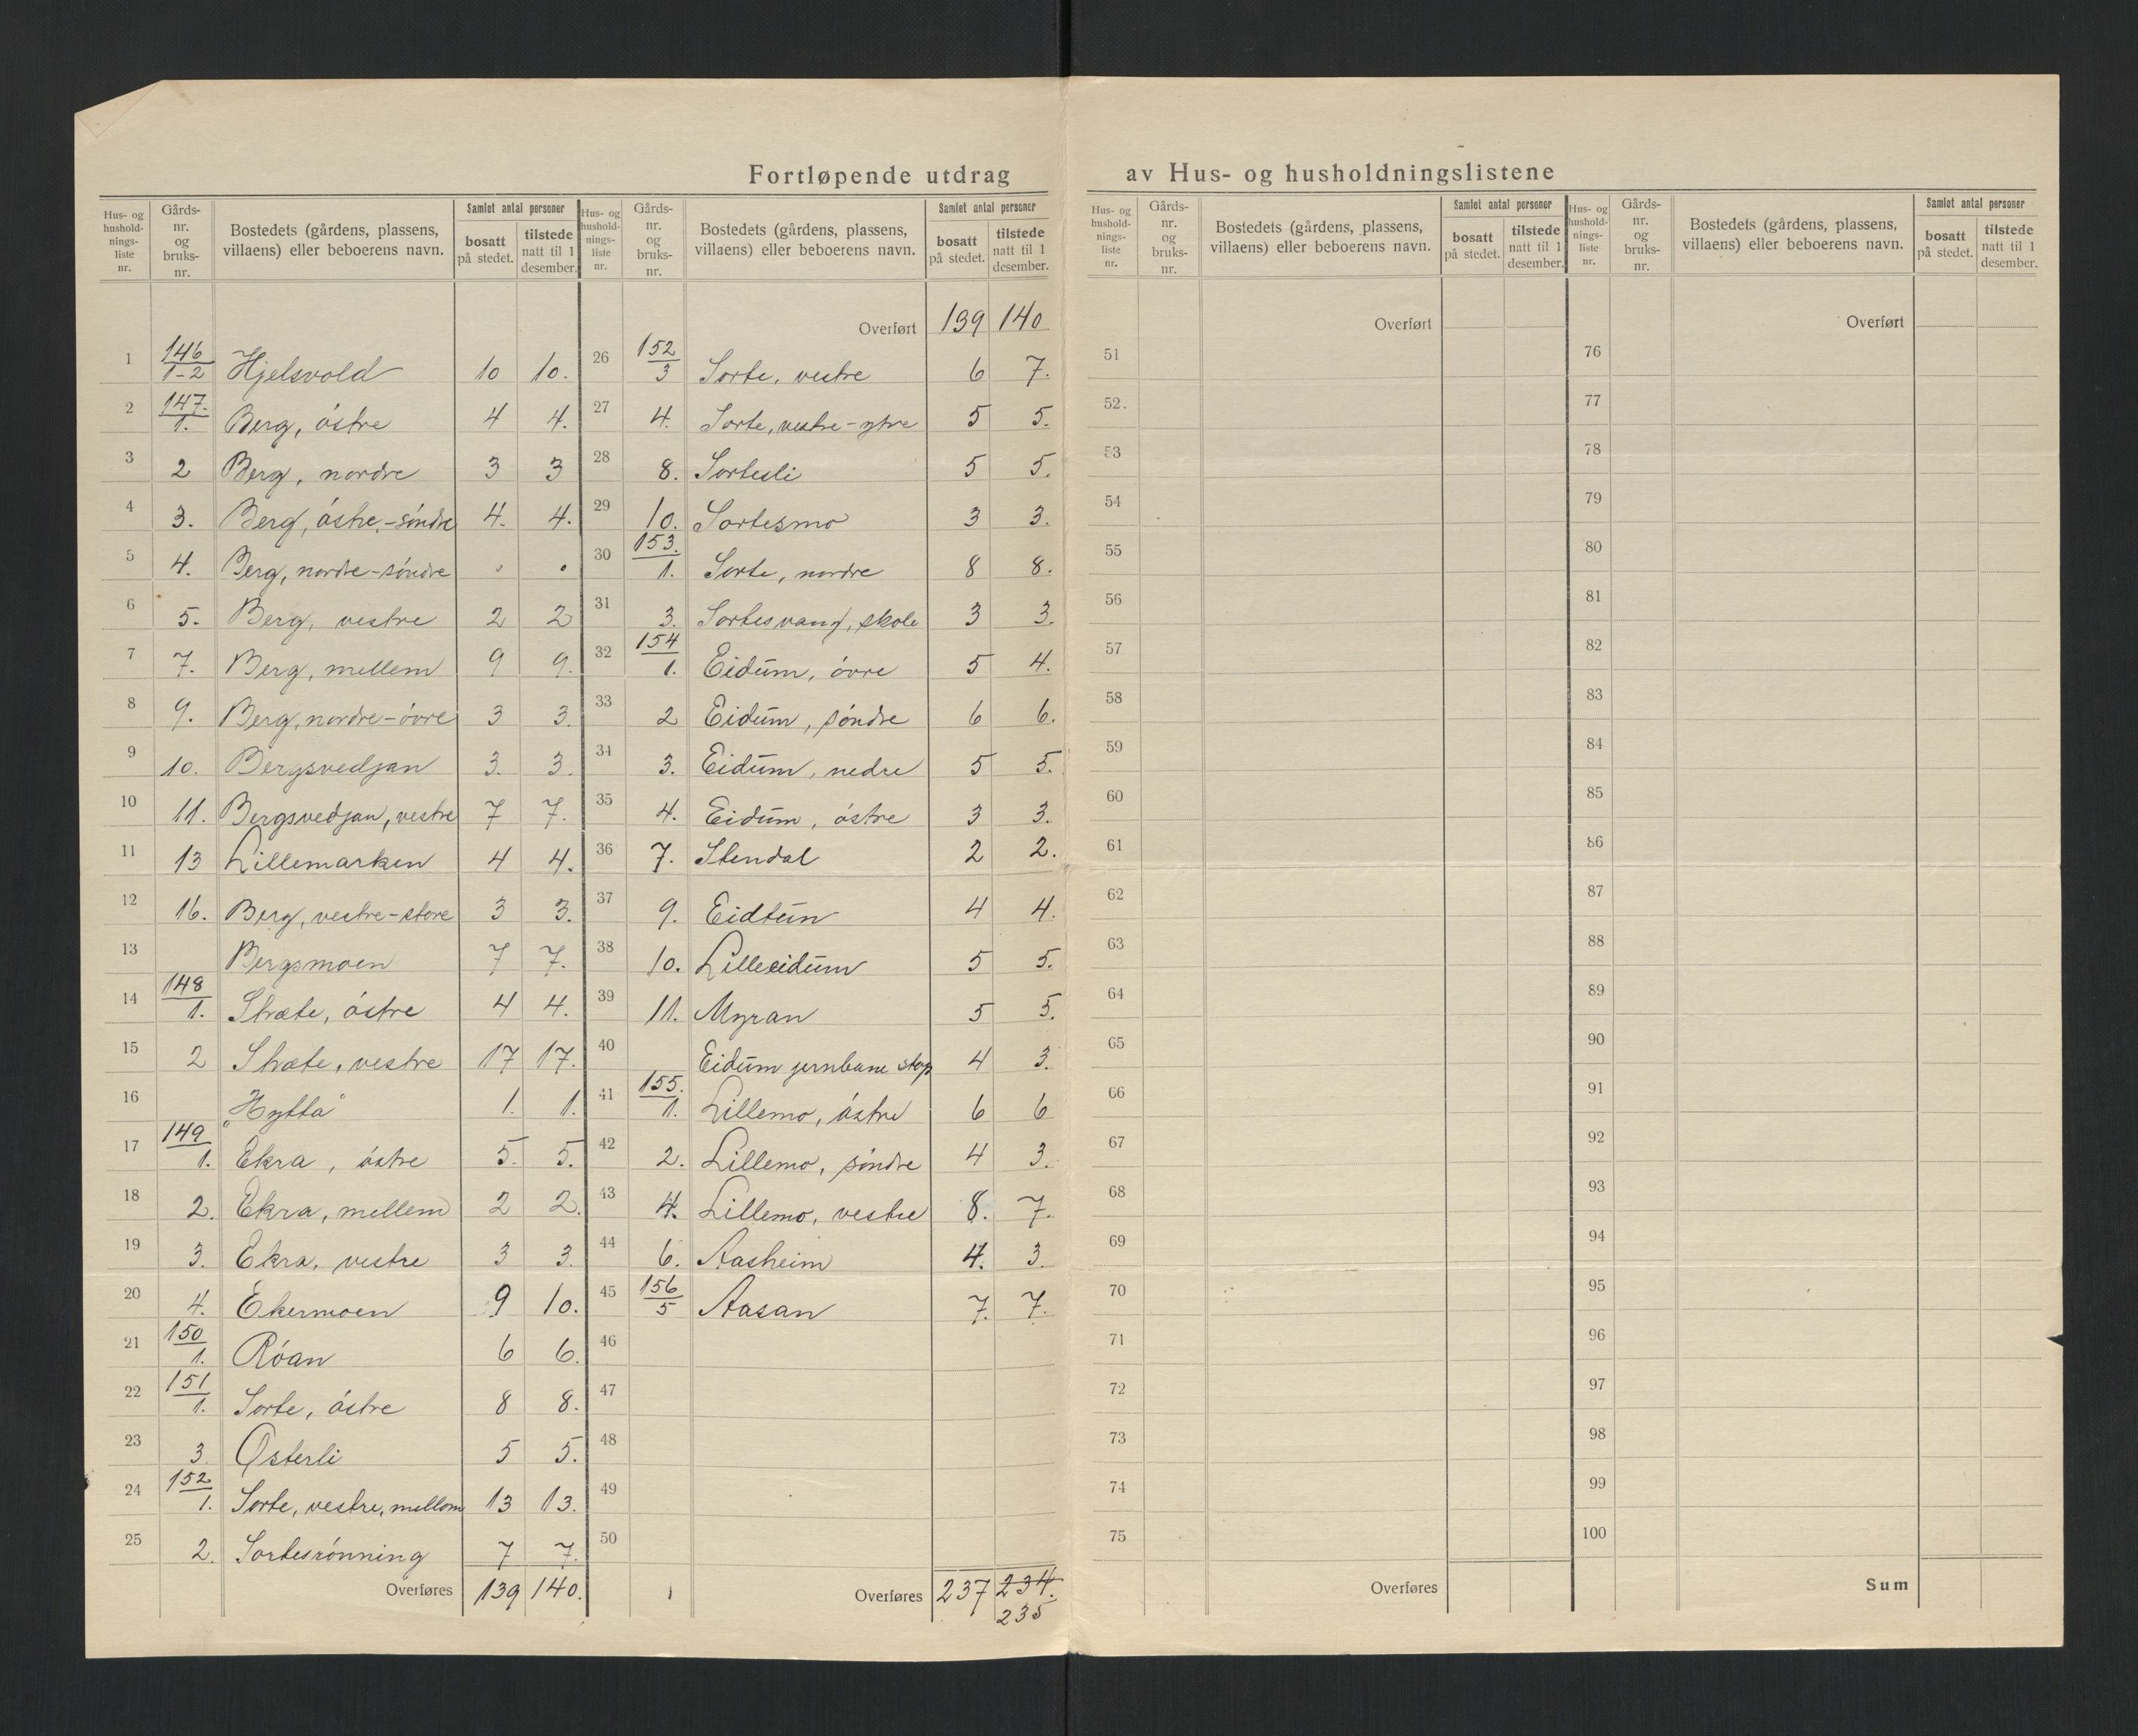 Fortløpende utdrag av Hus- og husholdningslistene
Hus- og hushold- nings- liste nr. | Gårds- nr. og bruks- nr. | Bostedets (gårdens, plassens, villaens) eller beboerens navn. | Samlet antal personer | bosatt på stedet. | tilstede natt til 1 desember.
1 146/1-2 Hjelsvold 10 10.
2 147./1. Berg, østre 4 4.
3 2 Berg, nordre 3 3
4 3. Berg, østre-søndre 4. 4.
5 4. Berg, nordre-søndre . .
6 5. Berg, vestre 2 2
7 7. Berg, mellem 9 9.
8 9. Berg, nordre-øvre 3 3.
9 10. Bergsvedjan 3. 3.
10 11. Bergsvedjan, vestre 7 7.
11 13 Lillemarken 4 4.
12 16. Berg, vestre-store 3 3.
13 Bergsmoen 7 7.
14 148/1. Stræte, østre 4 4.
15 2 Stræte, vestre 17 17.
16 „Hytta“ 1. 1.
17 149/1. Ekra, østre 5. 5.
18 2. Ekra, mellem 2 2.
19 3. Ekra, vestre 3 3.
20 4. Ekermoen 9 10.
21 150/1. Róan 6 6.
22 151/1. Sorte, østre 8 8.
23 3 Østerli 5 5.
24 152/1. Sorte, vestre, mellom 13 13.
25 2. Sortesrønning 7 7.
Overføres 139 140.
Hus- og hushold- nings- liste nr. | Gårds- nr. og bruks- nr. | Bostedets (gårdens, plassens, villaens) eller beboerens navn. | Samlet antal personer | bosatt på stedet. | tilstede natt til 1 desember.
Overført 139 140
26 152/3 Sorte, vestre 6 7.
27 4. Sorte, vestre-ytre 5 5.
28 8. Sortesli 5 5.
29 10. Sortesmo 3 3.
30 153./1. Sorte, nordre 8 8.
31 3. Sortesvang, skole 3 3.
32 154/1. Eidum, øvre 5 4.
33 2 Eidum, søndre 6 6.
34 3. Eidum, nedre 5 5.
35 4. Eidum, østre 3 3.
36 7. Stendal 2 2.
37 9. Eidtun 4 4.
38 10. Lilleeidum 5 5.
39 11. Myran 5 5.
40 Eidum jernbane stop 4 3.
41 155./1. Lillemo, østre 6 6
42 2. Lillemo, søndre 4 3.
43 4. Lillemo, vestre 8. 7.
44 6. Aasheim 4. 3.
45 156/5 Aasan 7. 7.
46
47
48
49
50
Overføres 237 234.
235
Hus- og hushold- nings- liste nr. | Gårds- nr. og bruks- nr. | Bostedets (gårdens, plassens, villaens) eller beboerens navn. | Samlet antal personer | bosatt på stedet. | tilstede natt til 1 desember.
Overført
51
52.
53
54
55
56
57
58
59
60
61
62
63
64
65
66
67
68
69
70
71
72
73
74
75
Overføres
Hus- og hushold- nings- liste nr. | Gårds- nr. og bruks- nr. | Bostedets (gårdens, plassens, villaens) eller beboerens navn. | Samlet antal personer | bosatt på stedet. | tilstede natt til 1 desember.
Overført
76
77
78
79
80
81
82
83
84
85
86
87
88
89
90
91
92
93
94
95
96
97
98
99
100
Sum